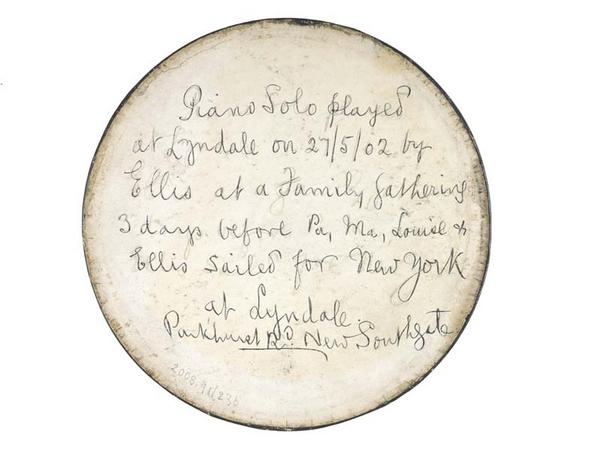 Piano Solo played
at Lyndale on 27/5/02 by
Ellis at a Family gathering
3 days before Pa, Ma, Louise &
Ellis sailed for New York
at Lyndale.
Parkhurst Rd. New Southgate